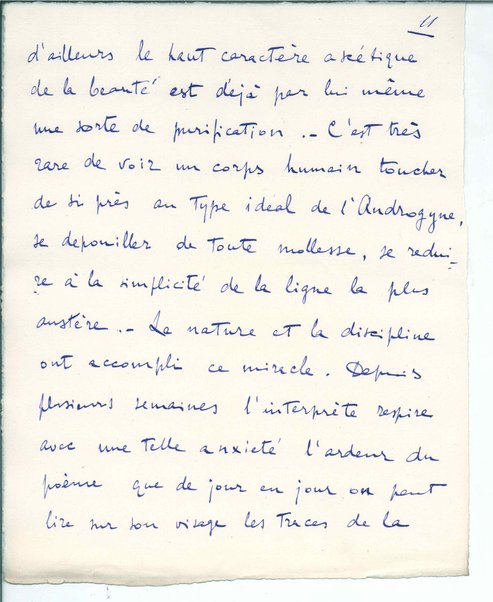 11
d'ailleurs le haut caractère ascétique
de la beauté est déjà par lui même
une sorte de purification. – C'est très
rare de voir un corps humain toucher
de si près au Type idéal de l'Androgyne,
se depouiller de toute mollesse, se redui-
re à la simplicité de la ligne la plus
austère. – La nature et la discipline
ont accompli ce miracle. Depuis
plusieurs semaines l'interprète respire
avec une telle anxieté l'ardeur du
poème que de jour en jour on peut
lire sur son visage les traces de la